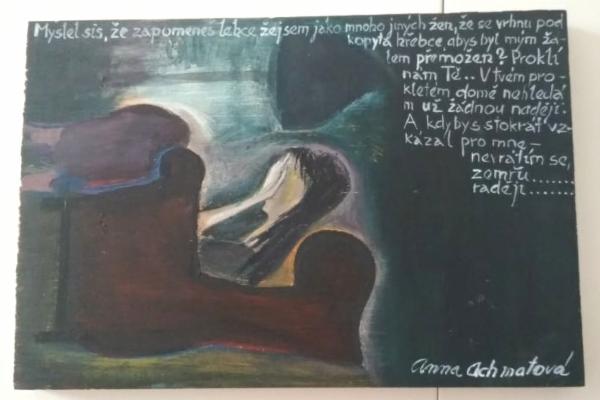 Myslel sis, že zapomeneš lehce žejsem jako mnoho jiných žen, že se vrhnu pod
kopyta hřebce, abys byl mým ža-
lem přemožen? Proklí
nám Tě.. V tvém pro-
kletém domě nehledá
m už žádnou naději.
A kdybys stokrát vz-
kázal pro mne -
nevrátím se,
zemřu.......
raději.......
Anna Achmatová